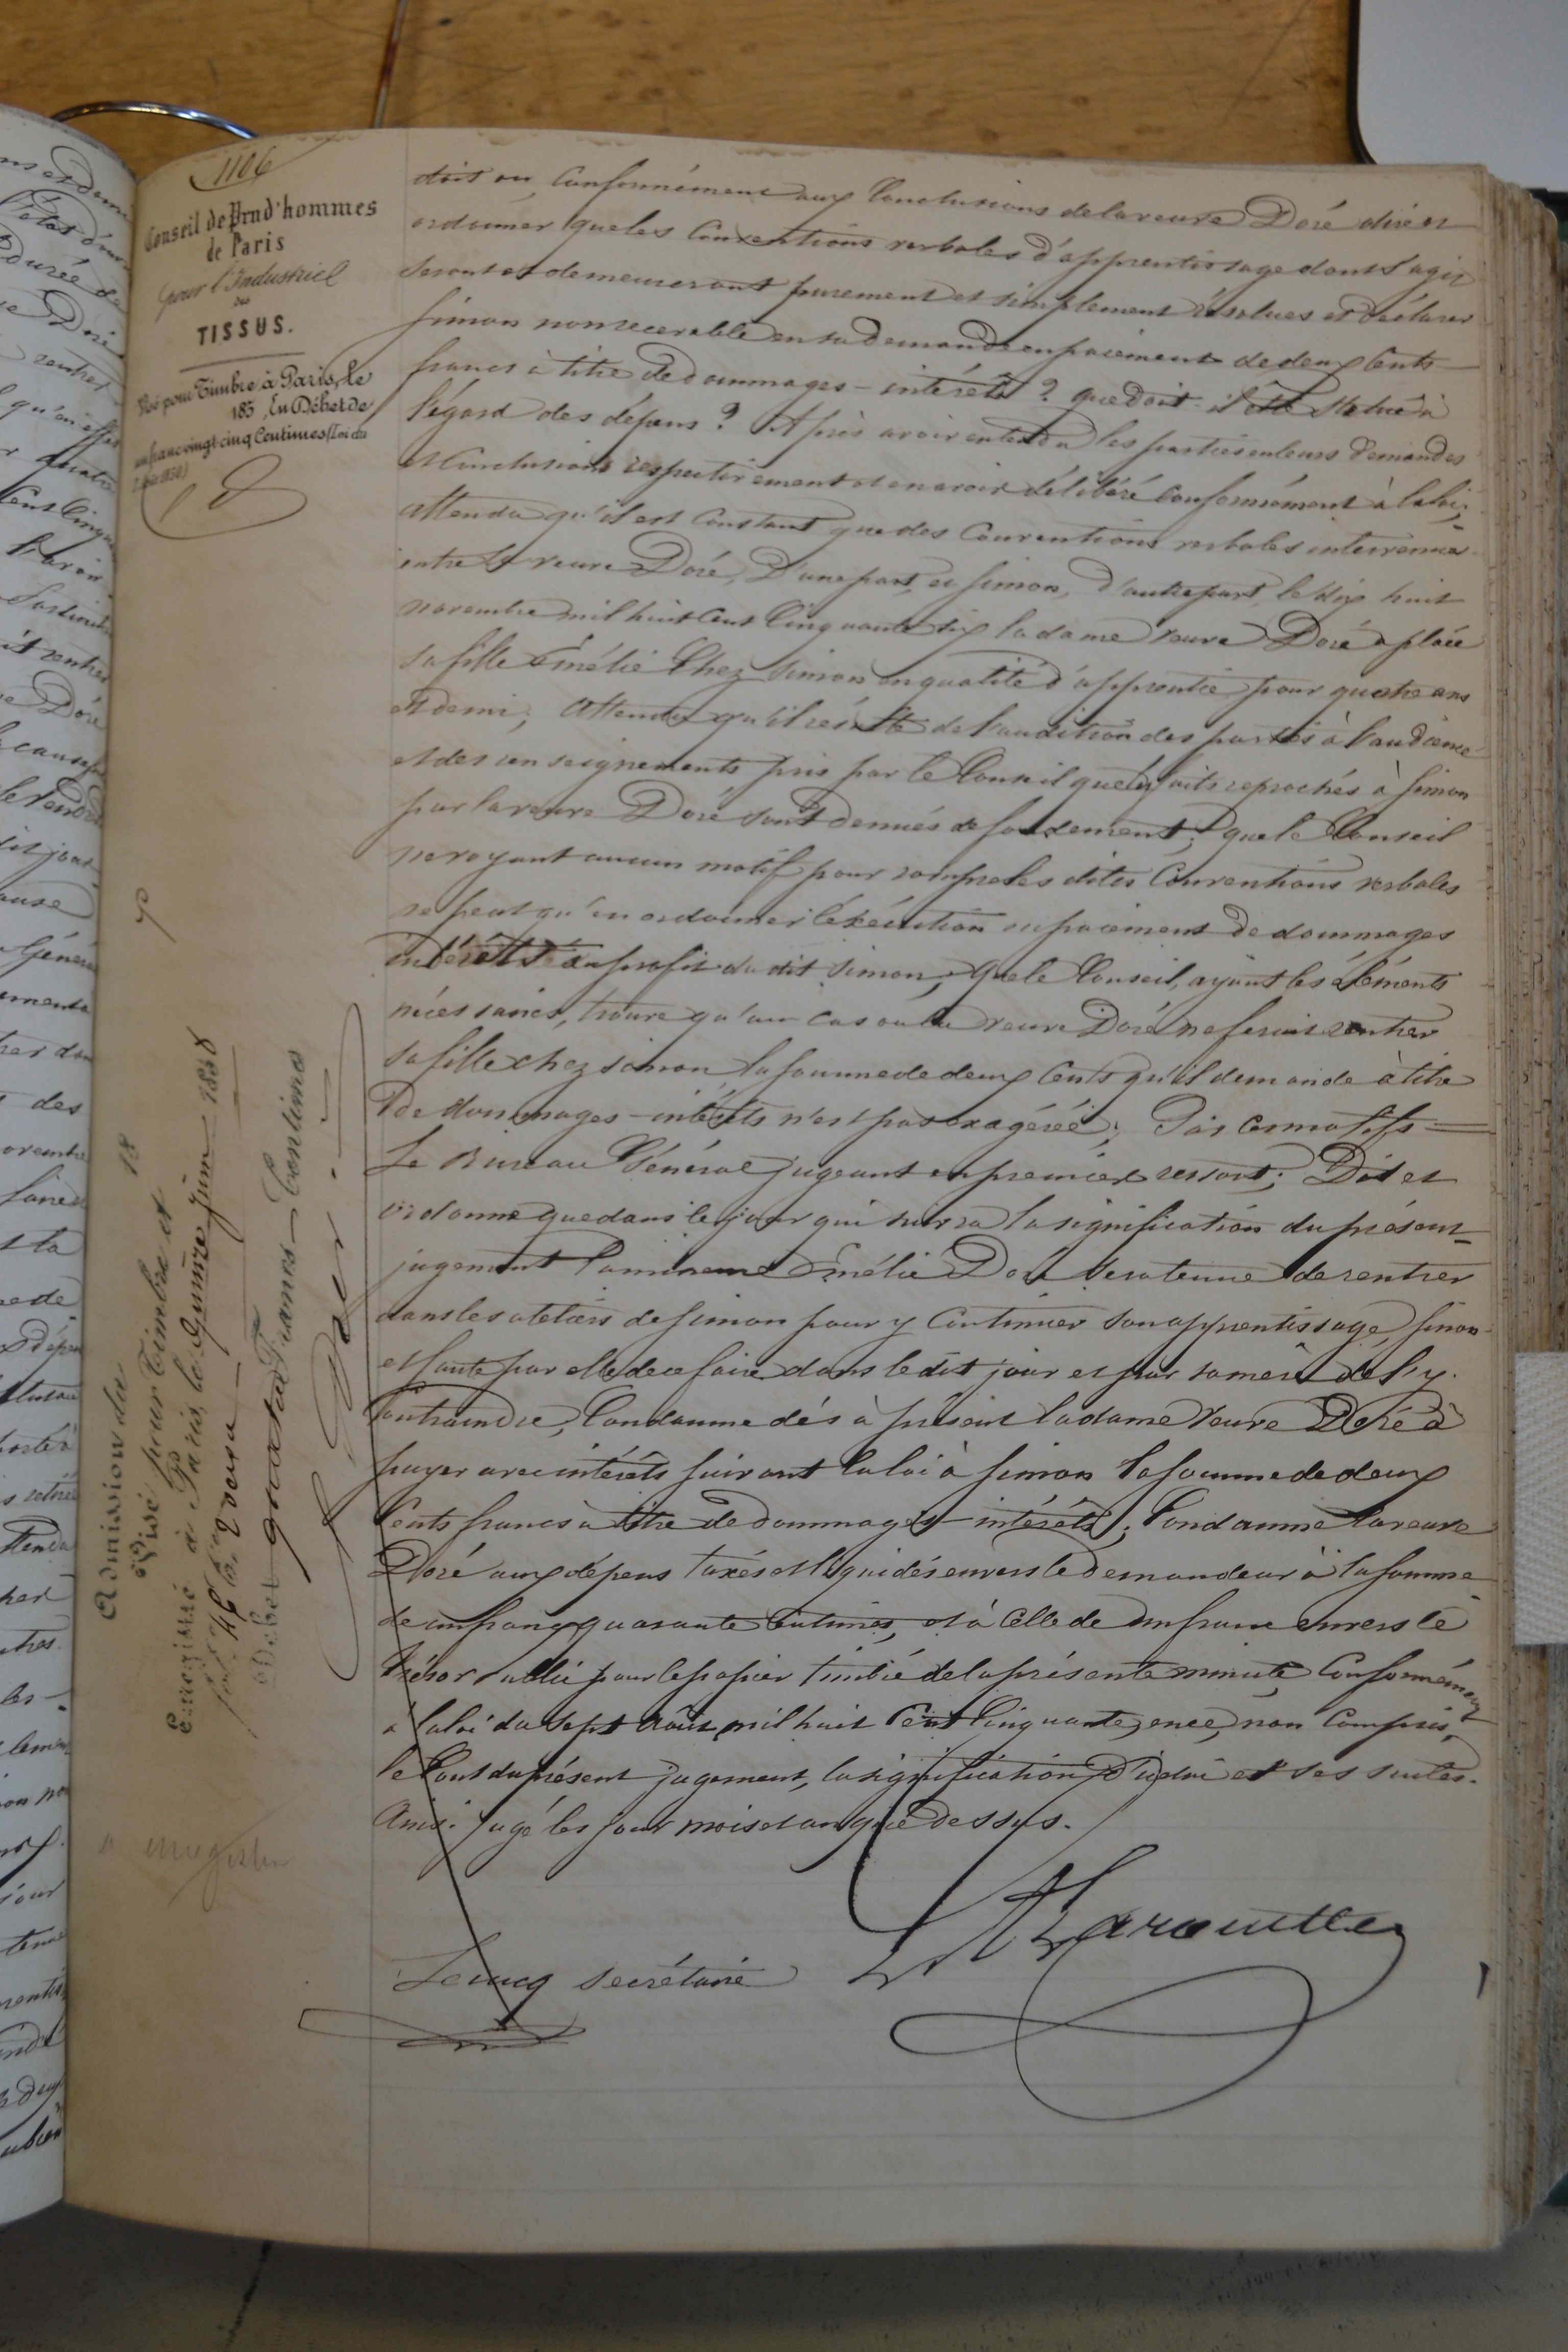 1106
Conseil de Prud'hommes
de Paris
pour l'Industriel
des
TISSUS.
Visé pour Timbre à Paris, le
185 , En Débet de
un franc vingt cinq Centimes (Loi du
doit on conformément aux Conclusions de la veuve Doré dire et
ordonner que les Conventions verbales d'apprentissage dont s'agit
seront et demeureront purement et simplement résolues et déclarer
Simon non recevable en sa demande en paiement de deux Cents
francs à titre de dommages-intérêts ? que doit-il être statué à
l'égard des dépens ? Après avoir entendu les parties en leurs demandes
et Conclusions respectivement et en avoir délibéré conformément à la loi;
attendu qu'il est Constant que des Conventions verbales intervenues
entre la veuve Doré, D'une part, et Simon, d'autre part, le dix huit
novembre mil huit Cent Cinquante six la dame veuve Doré a placé
sa fille Emélie Chez Simon en qualité d'apprentie pour quatre ans
et demi; Attendu qu'il résulte de l'audition des parties à l'audience
et des renseignements pris par le Conseil que les faits reprochés à Simon
par la veuve Doré sont denués de fondement; que le Conseil
ne voyant aucun motif pour rompre les dites Conventions verbales
ne peut qu'en ordonner l'exécution ou paiement de dommages
intérêts au profit du dit Simon; Que le Conseil, ayant les éléments
nécessaires, trouve qu'au cas où la veuve Doré ne ferait rentrer
sa fille chez Simon la somme de deux Cents qu'il demande à titre
De dommages-intérêts n'est pas exagérée; Par ces motifs
Le Bureau Général jugeant en premier ressort; Dit et
ordonne que dans le jour qui suivra la signification du présent
jugement la mineure Emélie Doré sera tenue de rentrer
dans les ateliers de Simon pour y Continuer son apprentissage, sinon
et faute par elle de ce faire dans le dit jour et par sa mère de l'y
Contraindre, Condamne dés à présent la dame Veuve Doré à
payer avec intérêts suivant la loi à Simon la somme de deux
Cents francs à titre de dommages-intérêts; Condamne la veuve
Doré aux dépens taxés et liquidés envers le demandeur à la somme
de un franc quarante Centimes, et à Celle de un franc envers le
Trésor Public pour le papier timbré de la présente minute, Conformément
à la loi du sept Août mil huit Cent Cinquante, ence, non Compris
le Cout du présent jugement, la signification d'icelui et ses suites.
Ainsi jugé les jour mois et an que dessus.
Lecucq secrétaire
Admission du 18
Visé pour Timbre et
Enregistré à Paris, le Quinze Juin 1858
46 2 verso
Débet gratis Francs Centimes